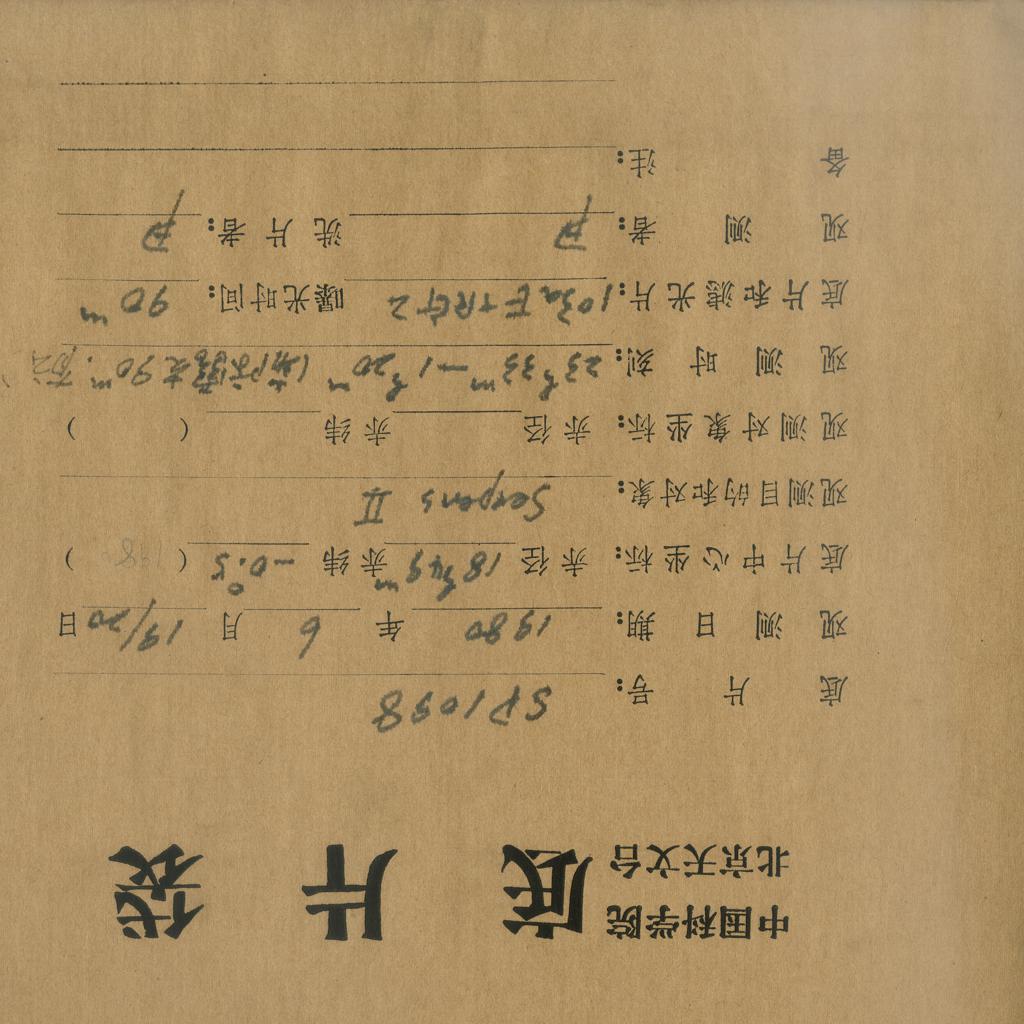 中国科学院
北京天文台 底片袋
底片号: SP1098
观测日期: 1980 年 6 月 19/20 日
底片中心坐标: 赤径 18h49m 赤纬 -0°.5 (198 )
观测目的和对象: Serpens II
观测对象坐标: 赤径 赤纬 ( )
观测时刻: 23h33m — 1h20m (实际露光90m.
底片和滤光片: 103aE+RG2 曝光时间: 90m
观测者: 洗片者:
备注: